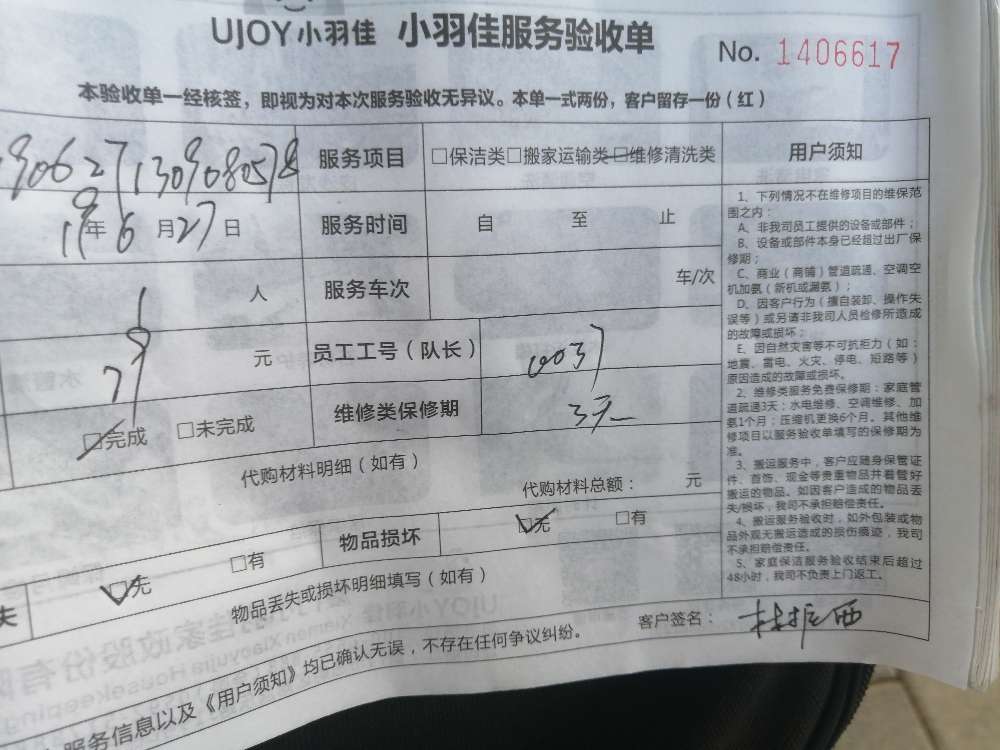 UJOY小羽佳 小羽佳服务验收单
No. 1406617
本验收单一经核签，即视为对本次服务验收无异议。本单一式两份，客户留存一份（红）
90627130908057
服务项目
□保洁类□搬家运输类□维修清洗类
用户须知
19年6月27日
服务时间
自 至 止
1 人
服务车次
车/次
元
员工工号（队长）
10037
□完成 □未完成
维修类保修期
3天
代购材料明细（如有）
代购材料总额： 元
□无 □有
物品损坏
□无 □有
物品丢失或损坏明细填写（如有）
服务信息以及《用户须知》均已确认无误，不存在任何争议纠纷。
客户签名：
1、下列情况不在维修项目的维保范
围之内：
A、非我司员工提供的设备或部件；
B、设备或部件本身已经超过出厂保
修期；
C、商业（商铺）管道疏通、空调空
机加氨（新机或漏氨）；
D、因客户行为（擅自装卸、操作失
误等）或另请非我司人员检修所造成
的故障或损坏；
E、因自然灾害等不可抗拒力（如：
地震、雷电、火灾、停电、短路等）
原因造成的故障或损坏。
2、维修类服务免费保修期：家庭管
道疏通3天；水电维修、空调维修、加
氨1个月；压缩机更换6个月。其他维
修项目以服务验收单填写的保修期为
准。
3、搬运服务中，客户应随身保管证
件、首饰、现金等贵重物品并看管好
搬运的物品。如因客户造成的物品丢
失/损坏，我司不承担赔偿责任。
4、搬运服务验收时，如外包装或物
品外观无搬运造成的损伤痕迹，我司
不承担赔偿责任。
5、家庭保洁服务验收结束后超过
48小时，我司不负责上门返工。